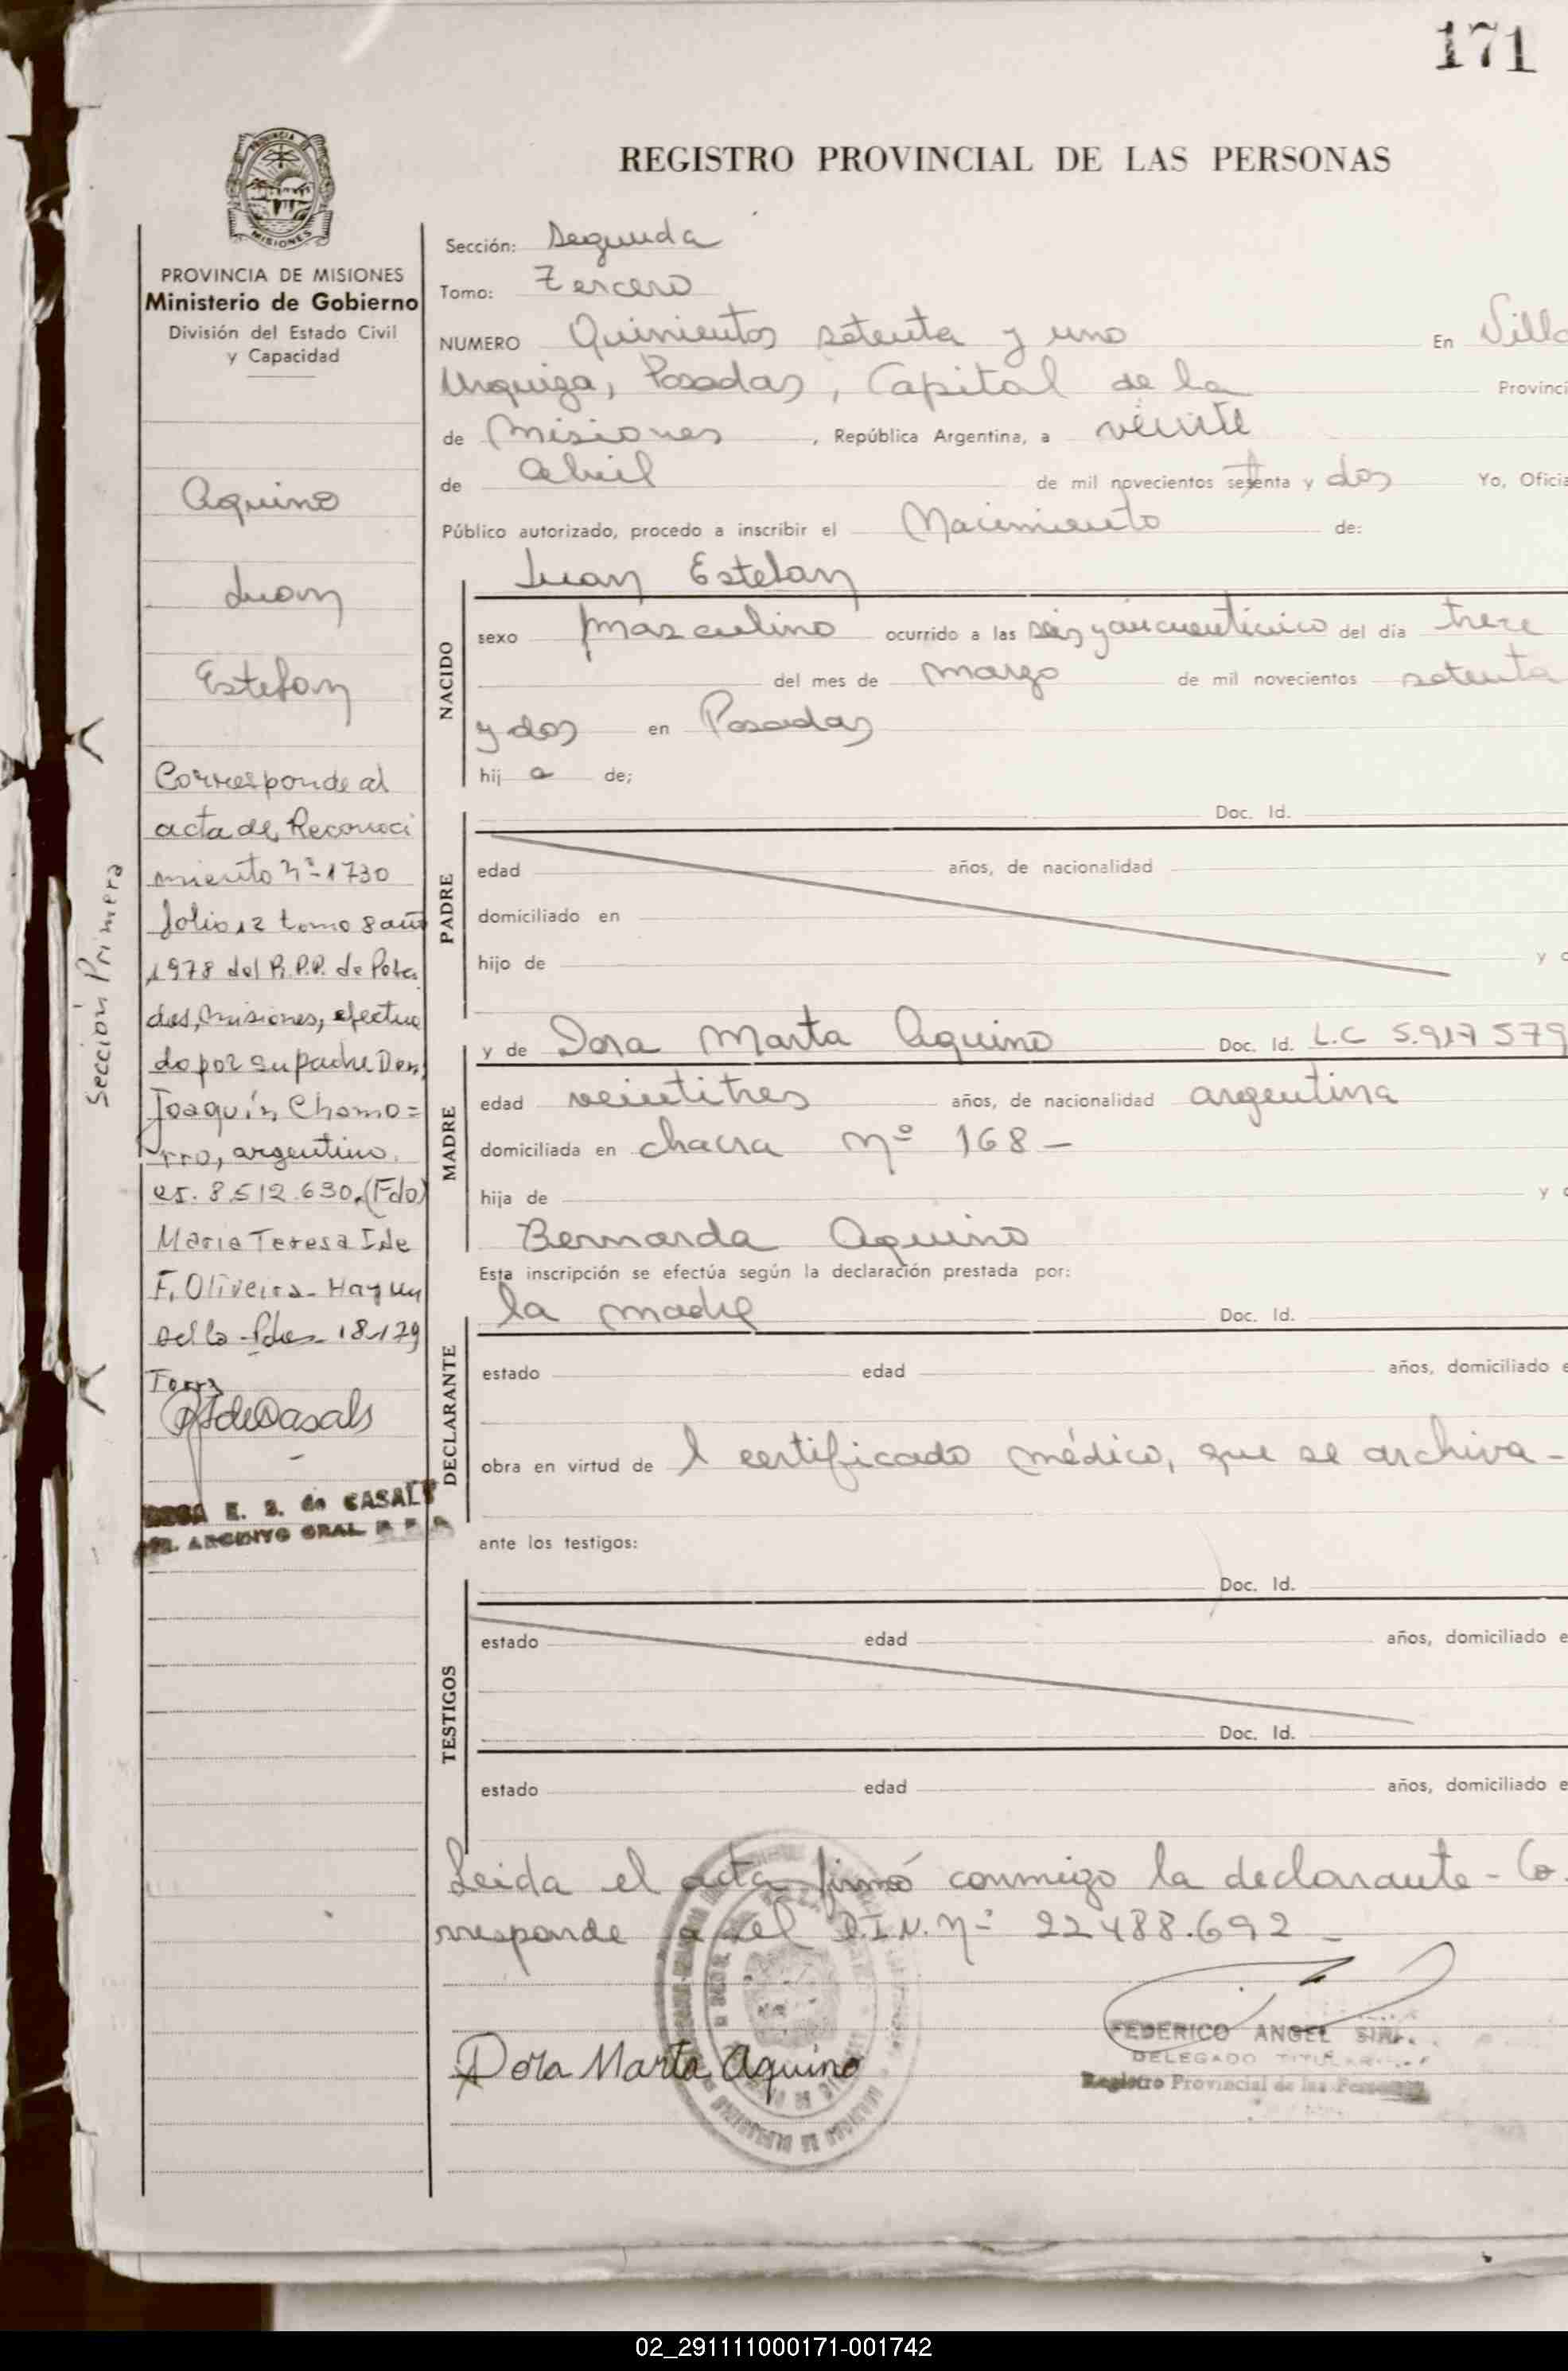 171
REGISTRO PROVINCIAL DE LAS PERSONAS
PROVINCIA DE MISIONES
Ministerio de Gobierno
División del Estado Civil
y Capacidad
Aquino
Juan
Esteban
Corresponde al
acta de Reconoci
miento nº 1730
folio 12 tomo 8 año
1978 del R.P.P. de Posa
das, Misiones, efectua
do por su padre Don
Joaquín Chamo=
rro, argentino.
8.512.630. (Fdo)
Maria Teresa
F. Oliveira - Hay un
sello - Pdas - 18-1-79
E. S. de CASALS
ARCHIVO GRAL R P P
Sección Primera
Sección: Segunda
Tomo: Tercero
NUMERO Quinientos setenta y uno En Villa
Urquiza, Posadas, Capital de la Provinci
de Misiones, República Argentina, a veinte
de abril de mil novecientos setenta y dos Yo, Oficia
Público autorizado, procedo a inscribir el Nacimiento de:
Juan Esteban
NACIDO
sexo masculino ocurrido a las seis y cincuenticinco del día trece
del mes de marzo de mil novecientos setenta
y dos en Posadas
hij o de;
PADRE
Doc. Id.
edad años, de nacionalidad
domiciliado en
hijo de y d
MADRE
y de Dora Marta Aquino Doc. Id. L.C 5.917 579
edad veintitres años, de nacionalidad argentina
domiciliada en chacra nº 168 -
hija de y d
Bernarda Aquino
Esta inscripción se efectúa según la declaración prestada por:
DECLARANTE
la madre Doc. Id.
estado edad años, domiciliado e
obra en virtud de l certificado médico, que se archiva -
ante los testigos:
TESTIGOS
Doc. Id.
estado edad años, domiciliado e
Doc. Id.
estado edad años, domiciliado e
Leida el acta firmó conmigo la declarante - Co
rresponde a el D.I.N. nº 22488.692 -
Dora Marta Aquino
FEDERICO ANGEL
DELEGADO TITULAR
Registro Provincial de las Personas
02_291111000171-001742